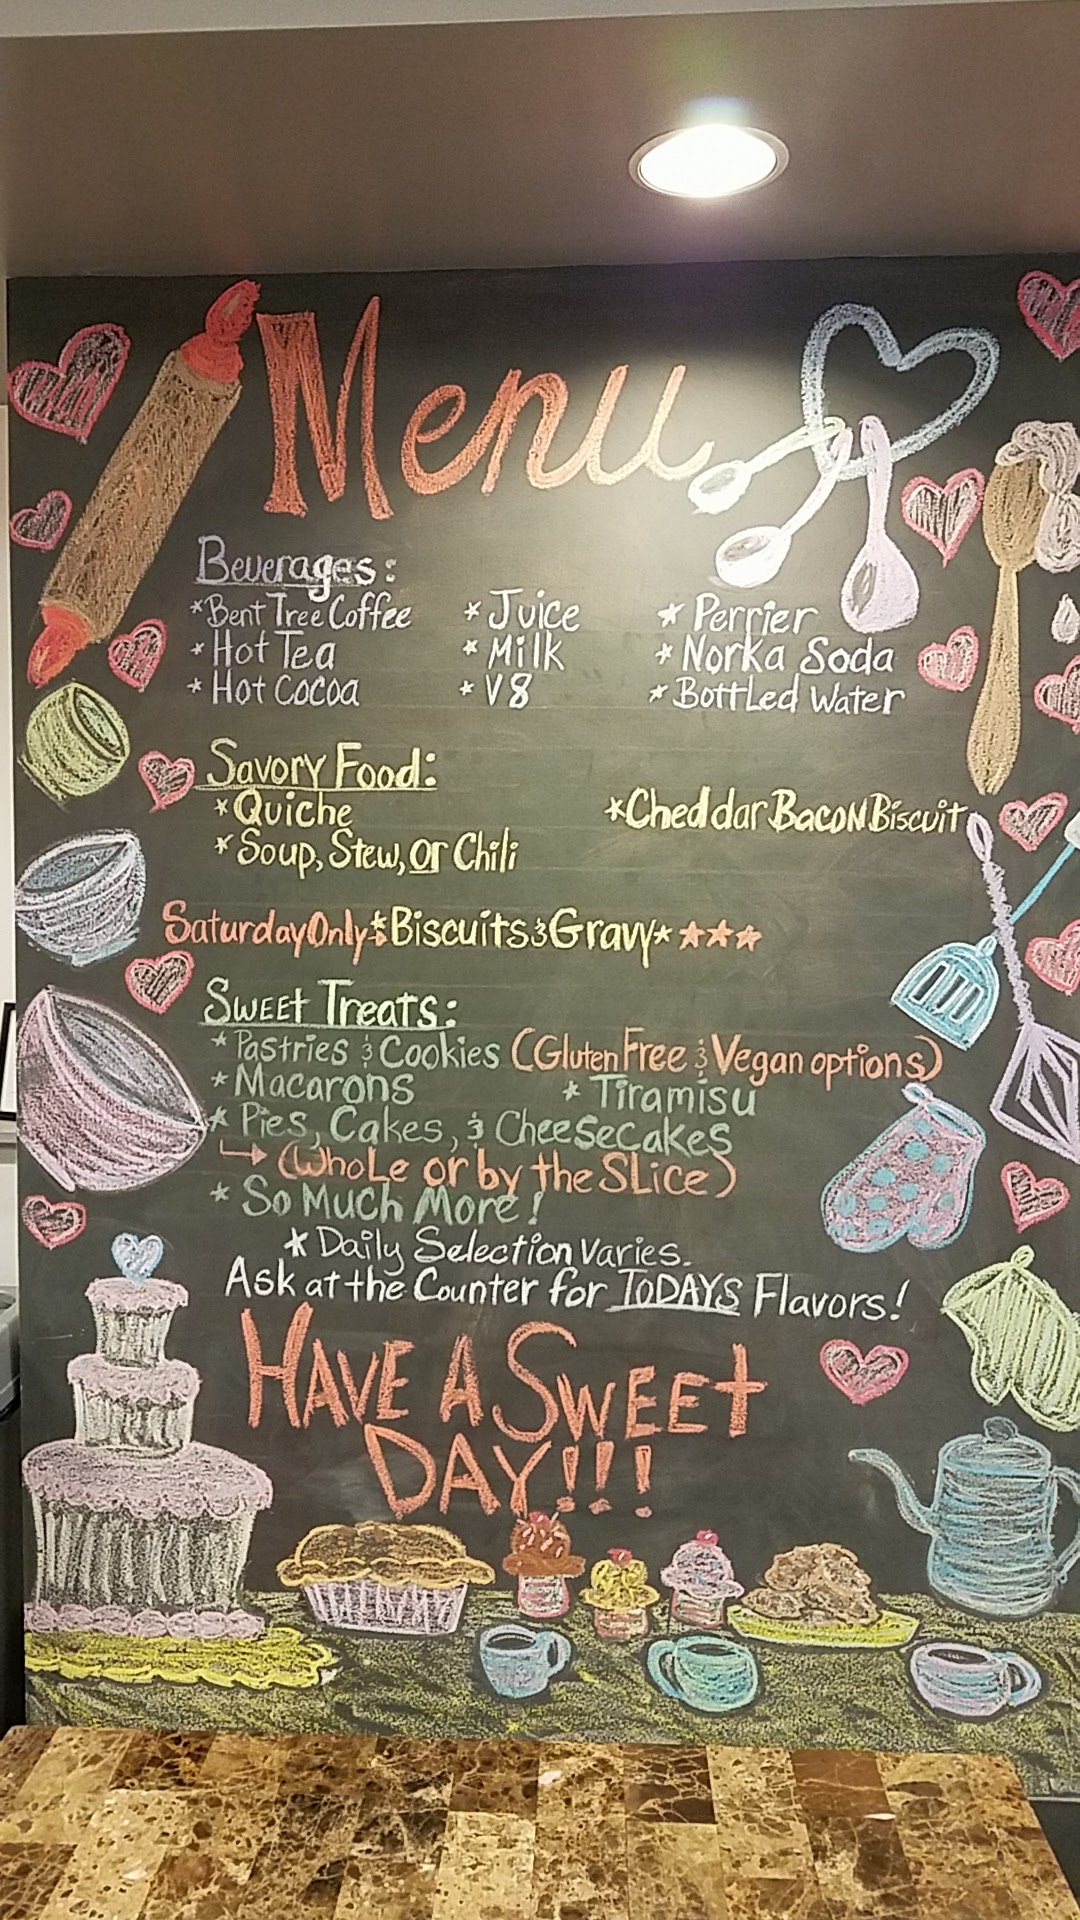 Menu
Beverages:
*Bent Tree Coffee * Juice * Perrier
* Hot Tea * Milk * Norka Soda
* Hot Cocoa * V8 * Bottled Water
Savory Food:
* Quiche *Cheddar Bacon Biscuit
* Soup, Stew, or Chili
Saturday Only: *Biscuits & Gravy* ★★★
Sweet Treats:
* Pastries & Cookies (Gluten Free & Vegan options)
* Macarons * Tiramisu
* Pies, Cakes, & Cheesecakes
↳ (Whole or by the Slice)
* So Much More!
* Daily Selection Varies.
Ask at the Counter for TODAYS Flavors!
HAVE A SWEET
DAY!!!